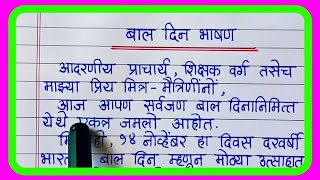 बाल दिन भाषण
आदरणीय प्राचार्य, शिक्षक वर्ग तसेच
माझ्या प्रिय मित्र-मैत्रिणींनो,
आज आपण सर्वजण बाल दिनानिमित्त
येथे एकत्र जमलो आहोत.
१४ नोव्हेंबर हा दिवस दरवर्षी
बाल दिन म्हणून मोठ्या उत्साहात